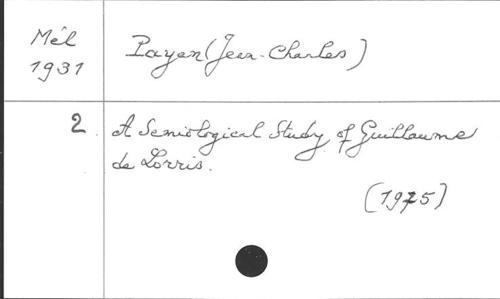 Mél
1931
Payen (Jean-Charles)
2. A Semiological Study of Guillaume
de Lorris.
(1975)